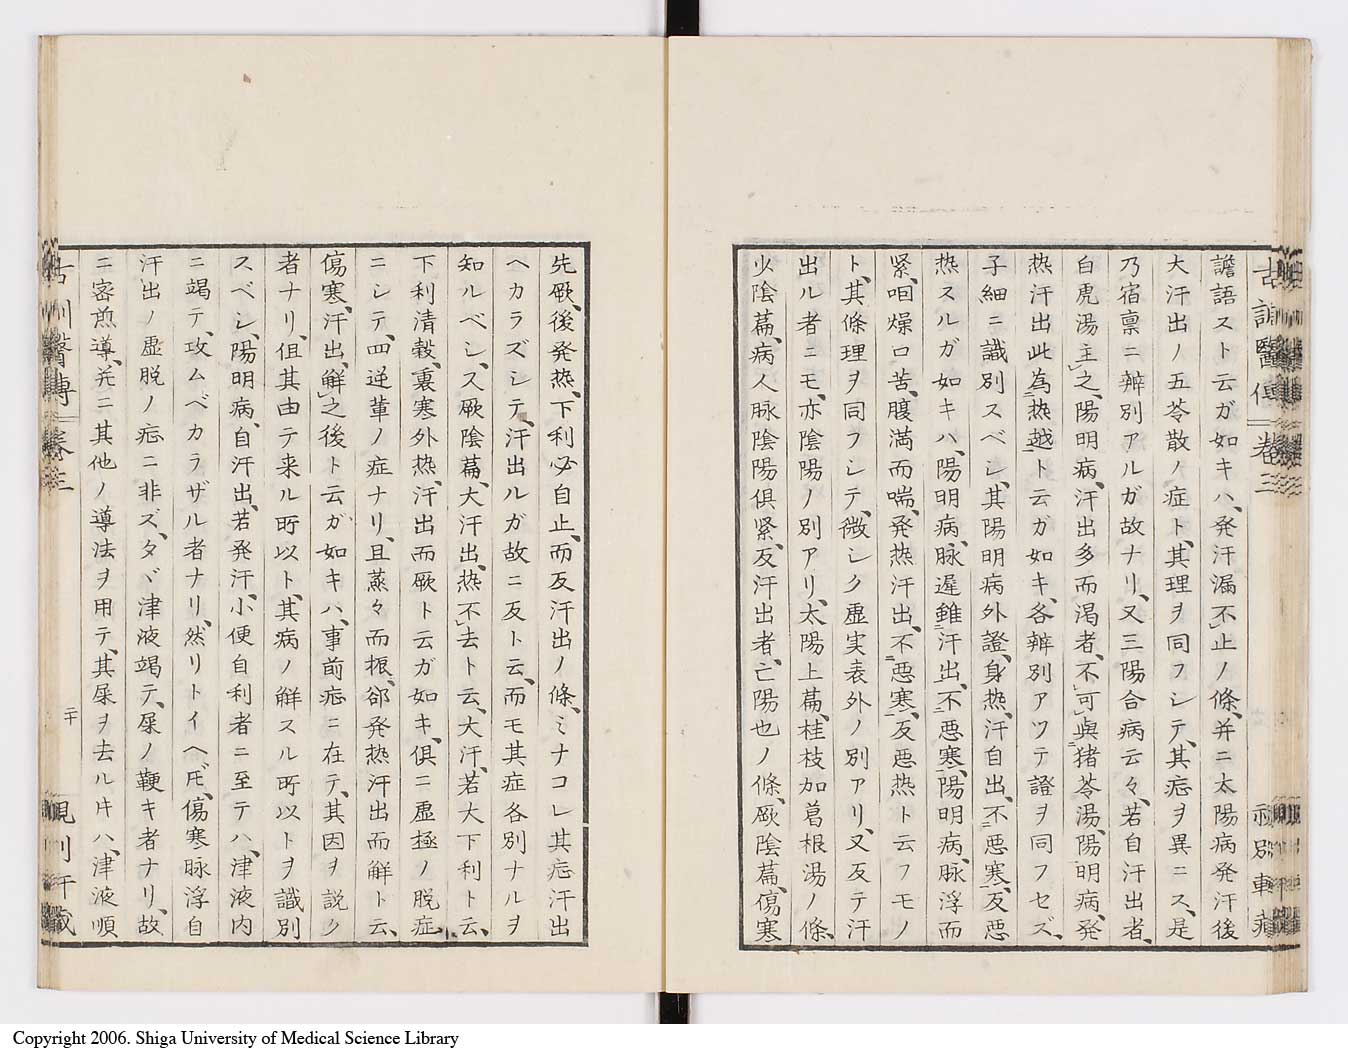 譫語スト云ガ如キハ、発汗漏不止ノ條、并ニ太陽病発汗後
大汗出ノ五苓散ノ症ト、其理ヲ同フシテ、其疟ヲ異ニス、是
乃宿稟ニ辨別アルガ故ナリ、又三陽合病云々、若自汗出者、
白虎湯主之、陽明病、汗出多而渇者、不可與猪苓湯、陽明病、発
热汗出此為热越ト云ガ如キ、各辨別アツテ證ヲ同フセズ、
子細ニ識別スベシ、其陽明病外證、身热、汗自出、不悪寒、反悪
热スルガ如キハ、陽明病、脉遅雖汗出、不悪寒、陽明病、脉浮而
緊、咽燥口苦、腹満而喘、発热汗出、不悪寒、反悪热ト云フモノ
ト、其條理ヲ同フシテ、微シク虚実表外ノ別アリ、又反テ汗
出ル者ニモ、亦陰陽ノ別アリ、太陽上萹、桂枝加葛根湯ノ條、
少陰萹、病人脉陰陽倶緊、反汗出者、亡陽也ノ條、厥陰萹、傷寒
先厥、後発热、下利必自止、而反汗出ノ條、ミナコレ其疟汗出
ヘカラズシテ、汗出ルガ故ニ反ト云、而モ其症各別ナルヲ
知ルベシ、又厥陰萹、大汗出、热不去ト云、大汗、若大下利ト云、
下利清穀、裏寒外热、汗出而厥ト云ガ如キ、倶ニ虚極ノ脱症
ニシテ、四逆軰ノ症ナリ、且蒸々而振、郤発热汗出而解ト云、
傷寒、汗出、解之後ト云ガ如キハ、事前疟ニ在テ、其因ヲ説ク
者ナリ、但其由テ来ル所以ト、其病ノ解スル所以トヲ識別
スベシ、陽明病、自汗出、若発汗、小便自利者ニ至テハ、津液内
ニ竭テ、攻ムベカラザル者ナリ、然リトイヘ𪜈、傷寒脉浮自
汗出ノ虚脱ノ疟ニ非ズ、タヾ津液竭テ、屎ノ鞕キ者ナリ、故
ニ密煎導、并ニ其他ノ導法ヲ用テ、其屎ヲ去ル片ハ、津液順
二十
Copyright 2006. Shiga University of Medical Science Library